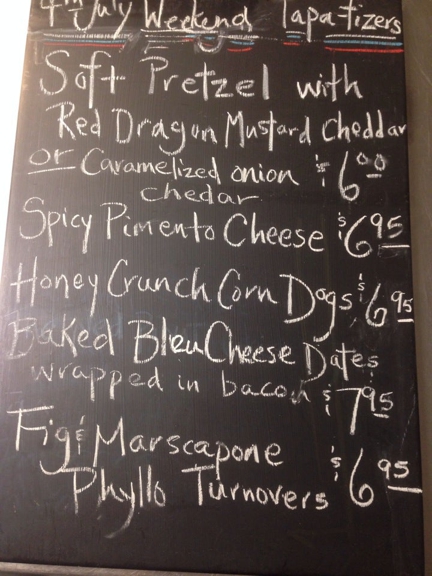 4th July Weekend Tapatizers
Soft Pretzel with
Red Dragon Mustard Cheddar
or Caramelized onion $6.00
chedar
Spicy Pimento Cheese $6.95
Honey Crunch Corn Dogs $6.95
Baked Bleu Cheese Dates
wrapped in bacon $7.95
Fig & Marscapone
Phyllo Turnovers $6.95